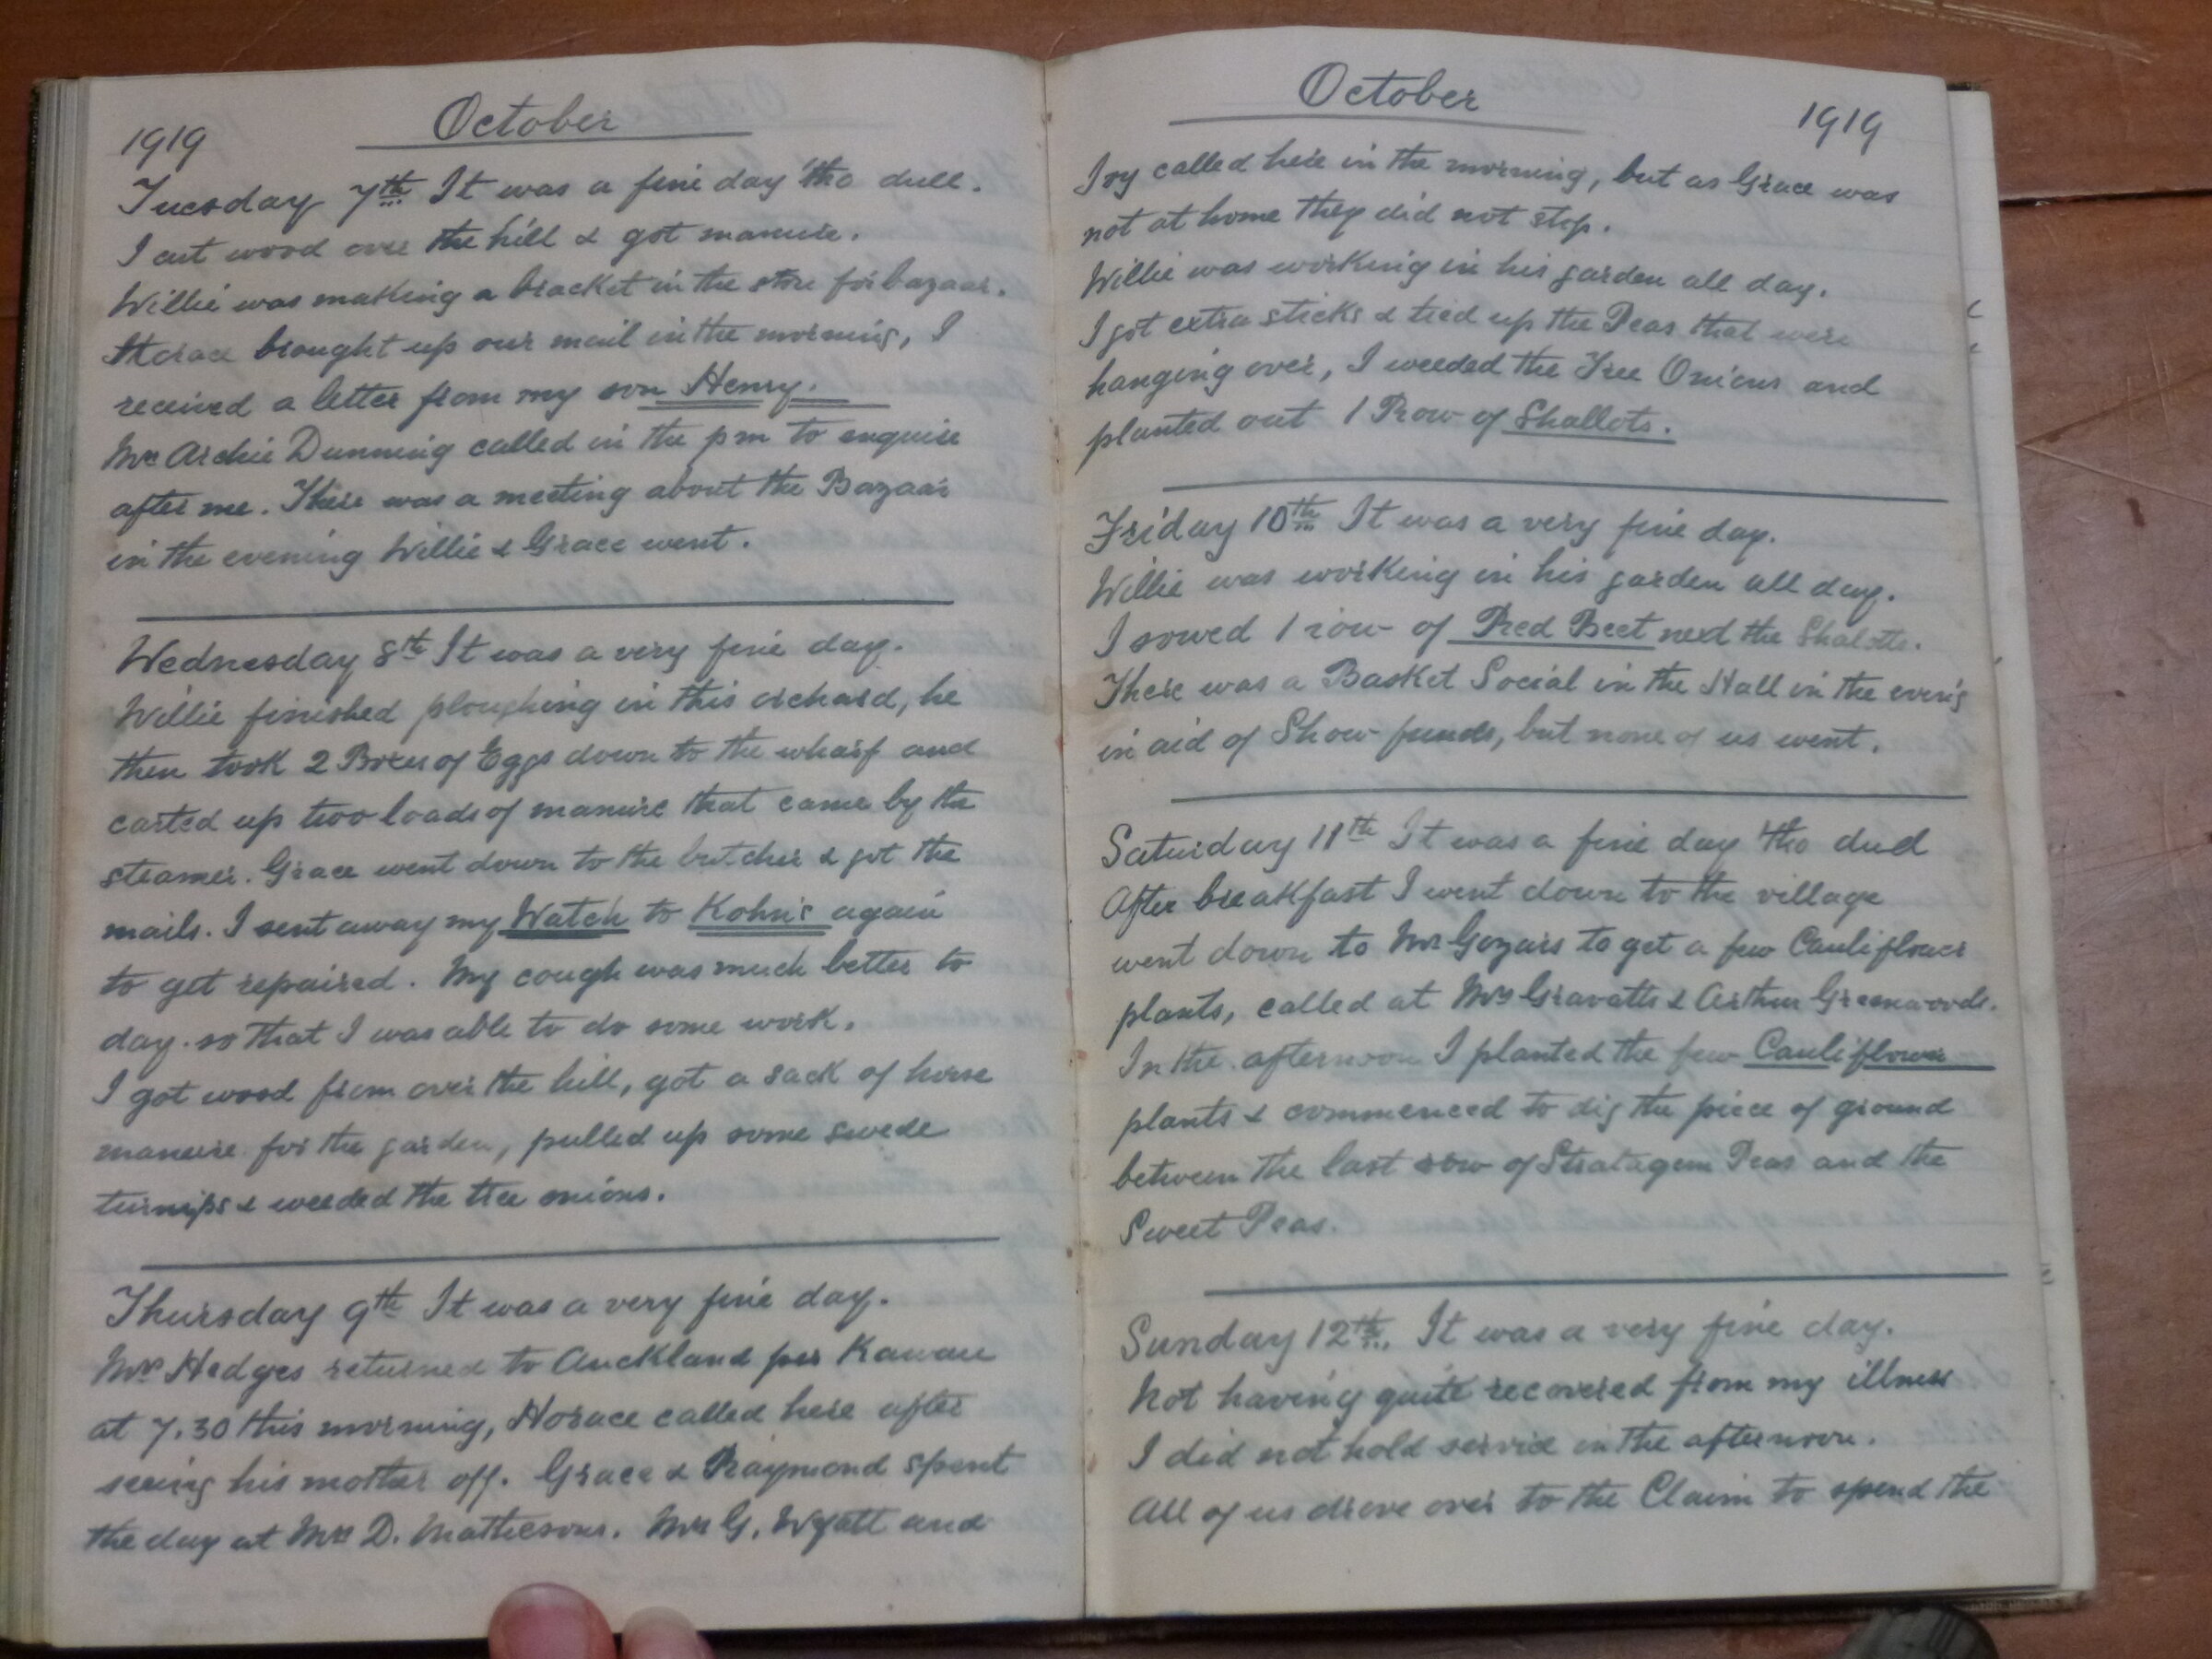 October
1919
Tuesday 7th It was a fine day tho dull.
I cut wood over the hill & got manure.
Willie was making a bracket in the store for bazaar.
Horace brought up our mail in the morning, I
received a letter from my son Henry.
Mr Archie Dunning called in the pm to enquire
after me. There was a meeting about the Bazaar
in the evening Willie & Grace went.
Wednesday 8th It was a very fine day.
Willie finished ploughing in this orchard, he
then took 2 Boxes of Eggs down to the wharf and
carted up two loads of manure that came by the
steamer. Grace went down to the butcher & got the
mails. I sent away my Watch to Kohn's again
to get repaired. My cough was much better to
day. so that I was able to do some work.
I got wood from over the hill, got a sack of horse
manure for the garden, pulled up some swede
turnips & weeded the tree onions.
Thursday 9th It was a very fine day.
Mrs Hedges returned to Auckland per Kawau
at 7.30 this morning, Horace called here after
seeing his mother off. Grace & Raymond spent
the day at Mrs D. Mathesons. Mrs G. Wyatt and
October
1919
Ivy called here in the morning, but as Grace was
not at home they did not stop.
Willie was working in his garden all day.
I got extra sticks & tied up the Peas that were
hanging over, I weeded the Tree Onions and
planted out 1 Row of Shallots.
Friday 10th It was a very fine day.
Willie was working in his garden all day.
I sowed 1 row of Red Beet next the Shalotts.
There was a Basket Social in the Hall in the even'g
in aid of Show funds, but none of us went.
Saturday 11th It was a fine day tho dud
After breakfast I went down to the village
went down to Mr to get a few Cauliflower
plants, called at Mrs Gravatts & Arthur Greenwoods.
In the afternoon I planted the few Cauliflower
plants & commenced to dig the piece of ground
between the last row of Stratagem Peas and the
Sweet Peas.
Sunday 12th. It was a very fine day.
Not having quite recovered from my illness
I did not hold service in the afternoon.
All of us drove over to the Claim to spend the